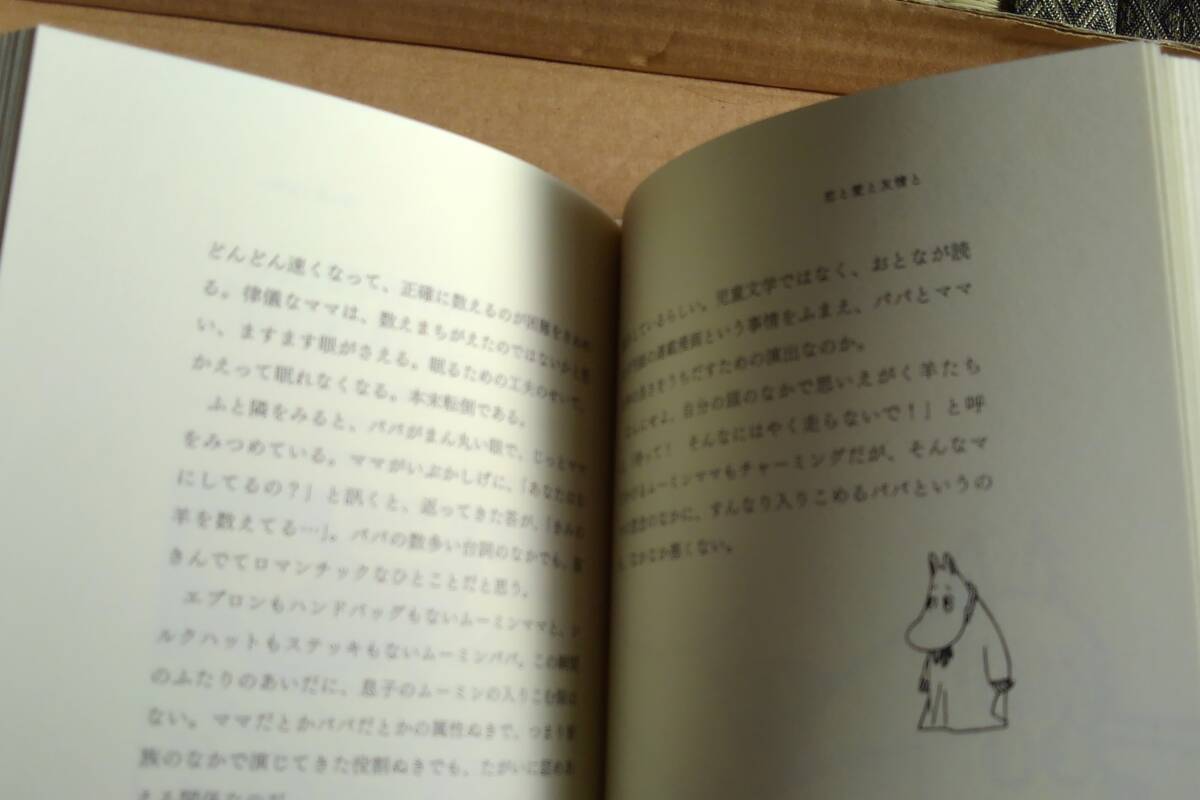 どんどん速くなって、正確に数えるのが困難をきわめ
る。律儀なママは、数えまちがえたのではないかと思
い、ますます眼がさえる。眠るための工夫のせいで、
かえって眠れなくなる。本末転倒である。
ふと隣をみると、パパがまん丸い眼で、じっとママ
をみつめている。ママがいぶかしげに、「あなたはな
にしてるの?」と訊くと、返ってきた答が、「きみの
羊を数えてる…」。パパの数多い台詞のなかでも、
きんでてロマンチックなひとことだと思う。
エプロンもハンドバッグもないムーミンママと、シ
ルクハットもステッキもないムーミンパパ。この瞬間
のふたりのあいだに、息子のムーミンの入りこむ
ない。ママだとかパパだとかの属性ぬきで、つまり家
族のなかで演じてきた役割ぬきでも、たがいに認めあ
える関係なのだ
恋と愛と友情と
しているらしい。児童文学ではなく、おとなが読
の連載漫画という事情をふまえ、パパとママ
をうちだすための演出なのか。
にせよ、自分の頭のなかで思いえがく羊たち
「待って! そんなにはやく走らないで!」と呼
かけるムーミンママもチャーミングだが、そんなマ
のなかに、すんなり入りこめるパパというの
なかなか悪くない。